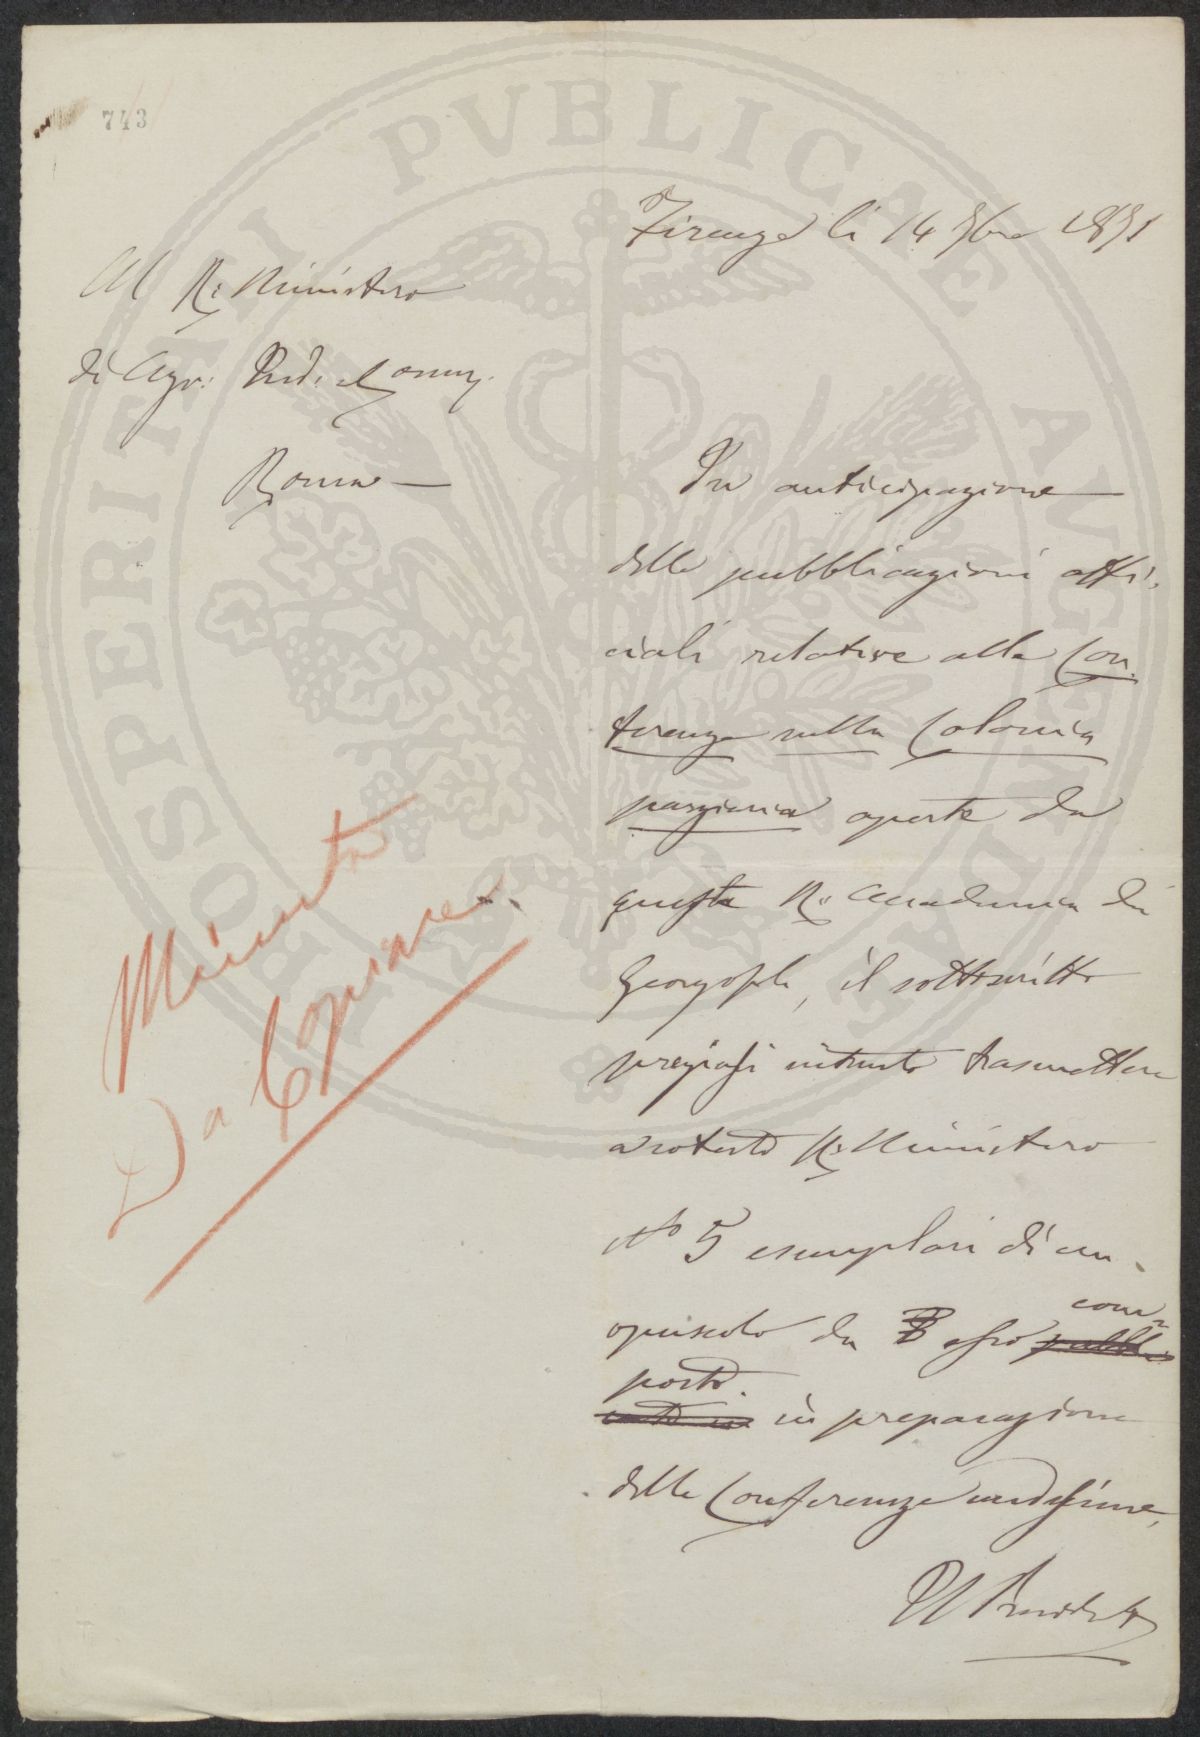 743
PROSPERITATI PVBLICAE AVGENDAE
Firenze li 14 1891
Al R. Ministero
di Agr. Ind. e Comm.
Roma —
In anticipazione
delle pubblicazioni offi-
ciali relative alle Con-
ferenze sulla Colonia
parziaria aperte da
questa R. Accademia dei
Georgofili, il sottoscritto
pregiasi intanto trasmettere
a cotesto R. Ministero
No 5 esemplari di un
opuscolo da esso com=
posto in preparazione
delle Conferenze medesime.
Il Presidente
Minuta
Da Copiare